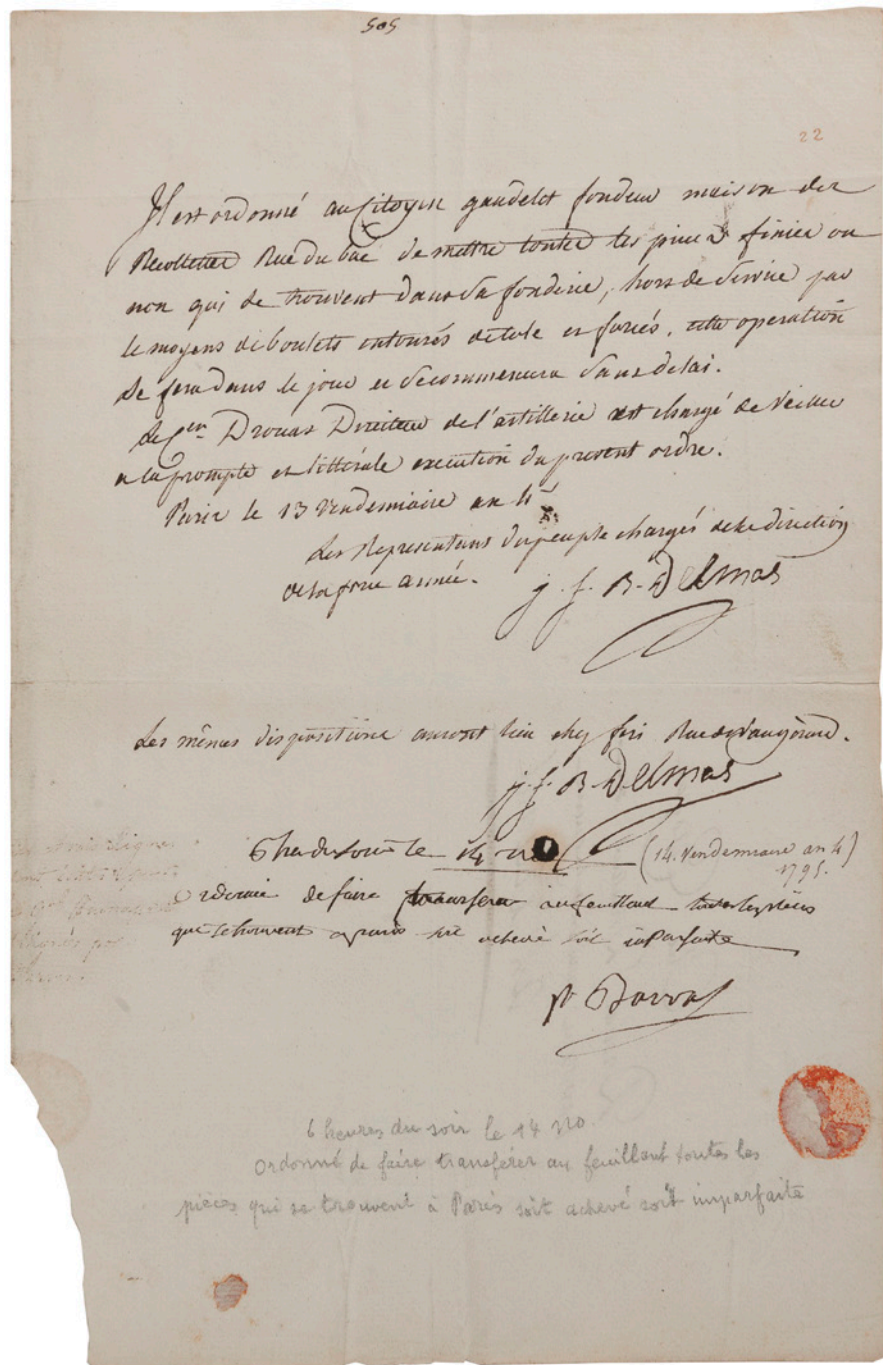 505
22
Il est ordonné au Citoyen gaudelet fondeur maison des
Recollettes Rue du bac de mettre toutes les pieces finies ou
non qui se trouvent dans sa fonderie, hors de service par
le moyens de boulets entourés de tole et forcés. cette operation
se fera dans le jour et se commencera sans delai.
Le Cen Drouas Directeur de l'artillerie est chargé de veiller
a la prompte et littérale execution du present ordre.
Paris le 13 Vendemiaire an 4
Les Representans du peuple chargés de la direction
de la force armée.
j. f. B. Delmas
Les mêmes dispositions auront lieu chez Rue de Vaugirard.
j. f. B. Delmas
6 h du soir le 14 no
(14. Vendemiaire an 4)
1795.
Ordonné de faire transferer au feuillant toutes les pieces
que se trouvent a paris soit achevé soit imparfaite
p. Barras
6 heures du soir le 14 no.
Ordonné de faire transférer au feuillant toutes les
pièces qui se trouvent à Paris soit achevé soit imparfaite